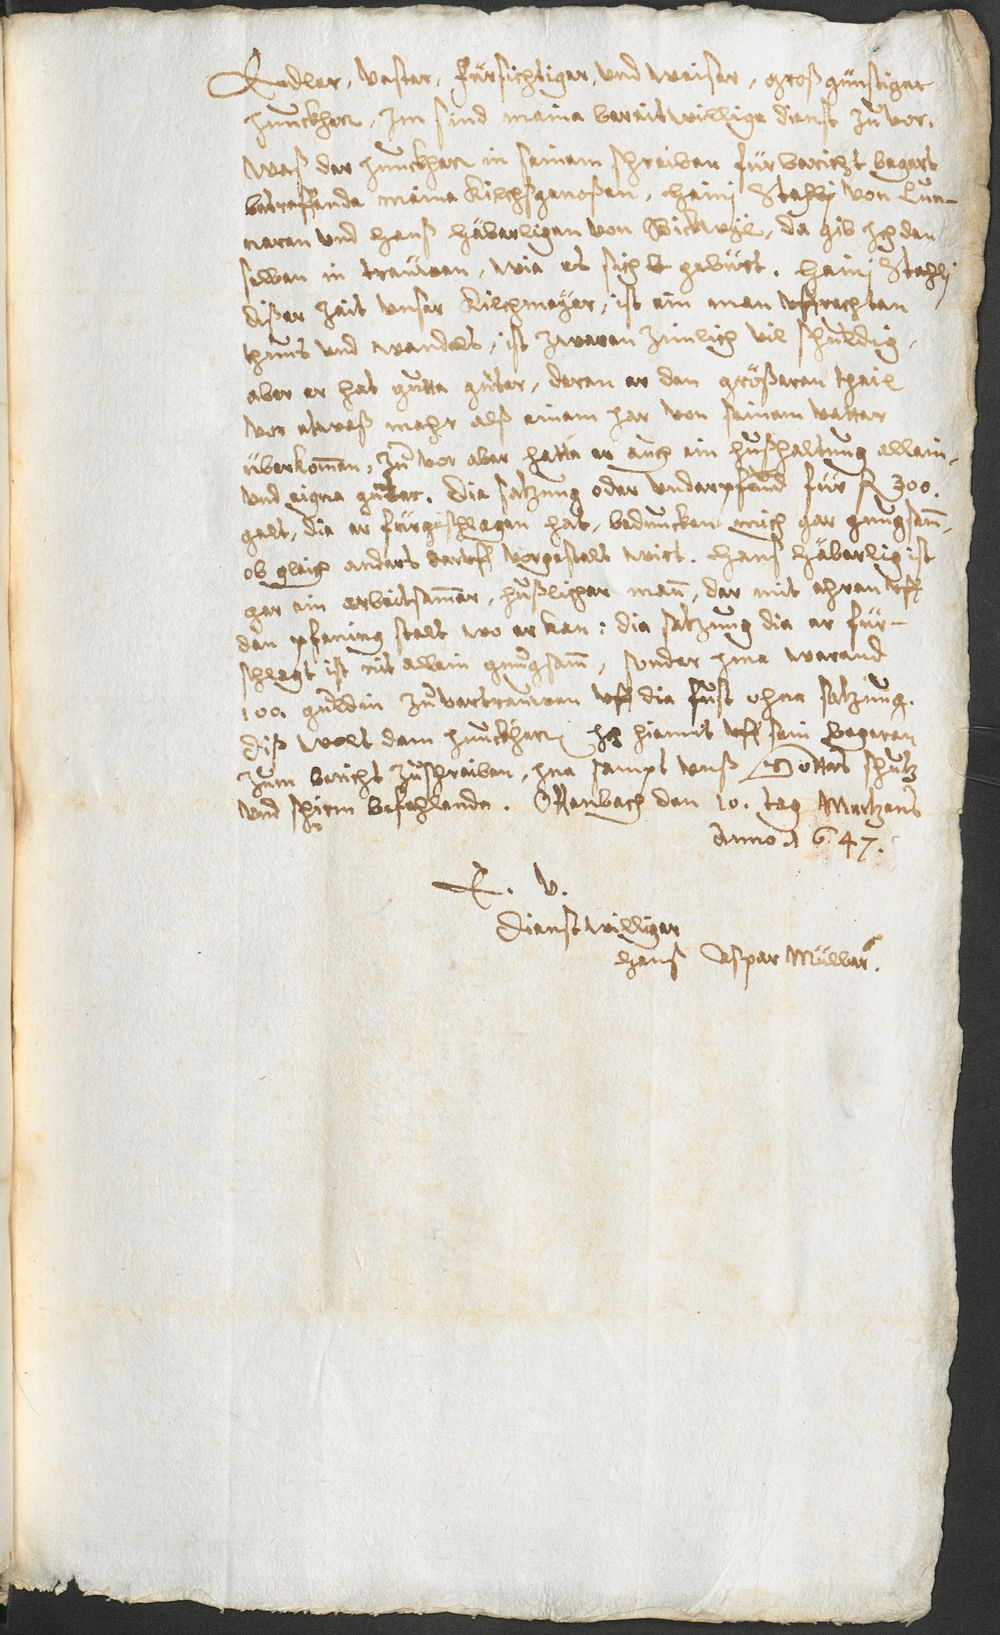 Edler, Vester, fürsichtiger, und weiser, großgünstiger
Junckher, Jm sind meine bereitwillige dienst zu vor.
Waß der Junckher in seinem schreiben für bericht begert
betreffende meine Kilchsgenoßen, Heinj Stehlj von Lun-
neren und Hanß Häberligen von Bickwyl, da gib jch den
selben in treüwen, wie es sich gebürt. Heinj Stehlj
dißer zeit unser Kilchmeyer, ist ein man uffrechten
thuns und wandels, ist zwaren zimlich vil schuldig,
aber er hat gutte güter, deren er den größeren theil
vor etwaß mehr alß einem Jar von seinem vatter
überkom̄en, zu vor aber hatte er auch ein hußhaltung allein,
und eigne güter. Die satzung oder underpfand für fl 300.
gelt, die er fürgeschlagen hat, beduncken mich gar gnugsam̄,
ob gleich anders daruff vorgestelt wirt. Hanß Häberlig ist
gar ein arbeitsammer, hußlicher man̄, der mit ehren uff
den pfening stelt wo er kan: die satzung die er für-
schlegt ist nit allein gnugsam̄, sonder jme werend
100. guldin zu vertrauwen uff die fust ohne satzung.
Diß wolt dem Junckheren jch hiemit uff sein begeren
zum bericht zuschreiben, jne sampt unß Gottes schutz
und schirm befehlende. Ottenbach den 10. tag Mertzens
Anno 1647.
E. V.
Dienstwilliger
Hanß Caspar Müller.